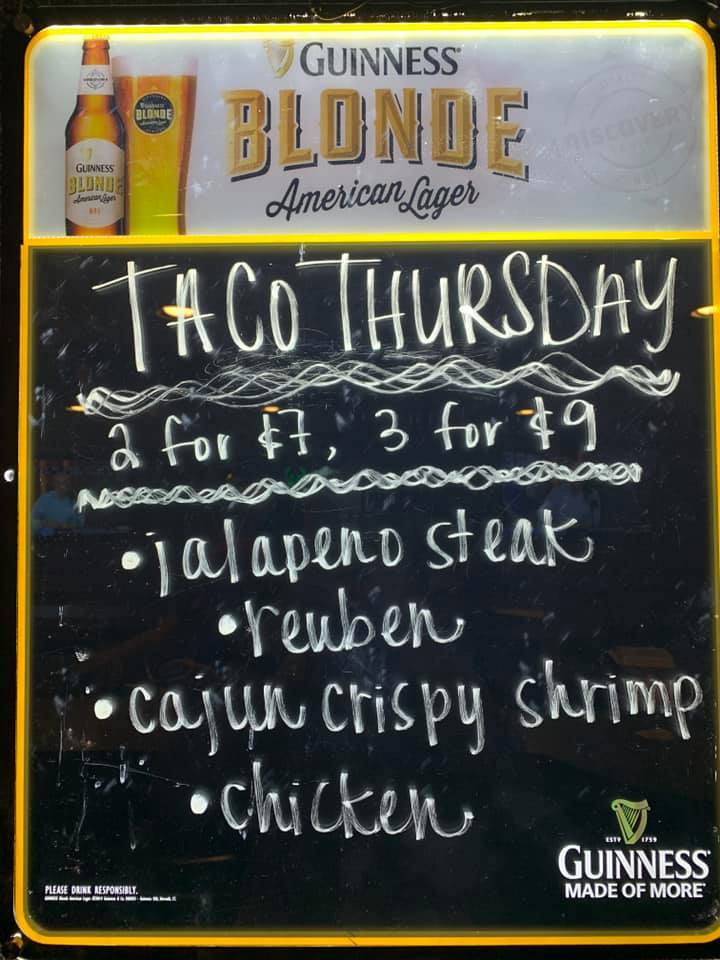 GUINNESS
BLONDE
American Lager
GUINNESS
BLONDE
American Lager
BLONDE
TACO THURSDAY
2 for $7, 3 for $9
•jalapeno steak
•reuben
•cajun crispy shrimp
•chicken
ESTD 1759
GUINNESS
MADE OF MORE
PLEASE DRINK RESPONSIBLY.